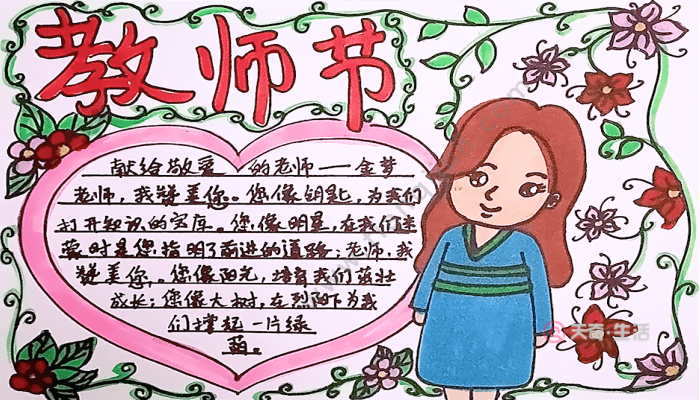 教师节
献给敬爱的老师——金梦
老师,我赞美您。您像钥匙,为我们
打开知识的宝库。您像明星,在我们迷
蒙时是您指明了前进的道路;老师,我
赞美您,。您像阳光,培育我们茁壮
成长;您像大树,在烈阳下为我
们撑起一片绿
荫。
天奇生活